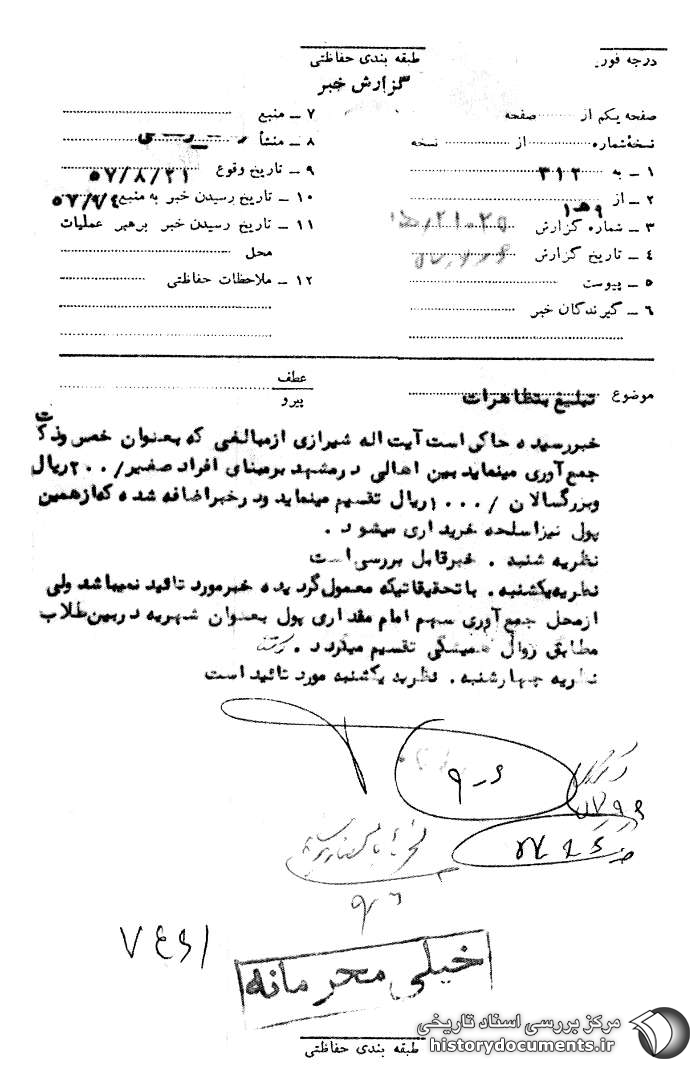 درجه فور
طبقه بندی حفاظتی
گزارش خبر
صفحه یکم از صفحه
نسخهٔ شماره از نسخه
۱ ـ به ۳۱۲
۲ ـ از ۹ﻫ۱
۳ ـ شماره گزارش
۴ ـ تاریخ گزارش
۵ ـ پیوست
۶ ـ گیرندگان خبر
۷ ـ منبع
۸ ـ منشأ
۹ ـ تاریخ وقوع ۵۷/۸/۲۱
۱۰ ـ تاریخ رسیدن خبر به منبع ۵۷/۹/۴
۱۱ ـ تاریخ رسیدن خبر برهبر عملیات
محل
۱۲ ـ ملاحظات حفاظتی
موضوع تبلیغ بتظاهرات
عطف
پیرو
خبررسیده حاکی است آیت اله شیرازی ازمبالغی که بعنوان خمس وذکات
جمع آوری مینماید بین اهالی درمشهد برمبنای افراد صغیر/۲۰۰ریال
وبزرگسالان /۱۰۰۰ریال تقسیم مینماید ودرخبراضافه شده که ازهمین
پول نیزاسلحه خریداری میشود .
نظریه شنبه . خبرقابل بررسی است
نظریه یکشنبه . با تحقیقاتیکه معمول گردیده خبرمورد تائید نمیباشد ولی
ازمحل جمع آوری سهم امام مقداری پول بعنوان شهریه دربین طلاب
مطابق روال همیشگی تقسیم میگردد .
نظریه چهارشنبه . نظریه یکشنبه مورد تائید است
۹ـ۶
۹/۶
خیلی محرمانه
طبقه بندی حفاظتی
مرکز بررسی اسناد تاریخی
historydocuments.ir